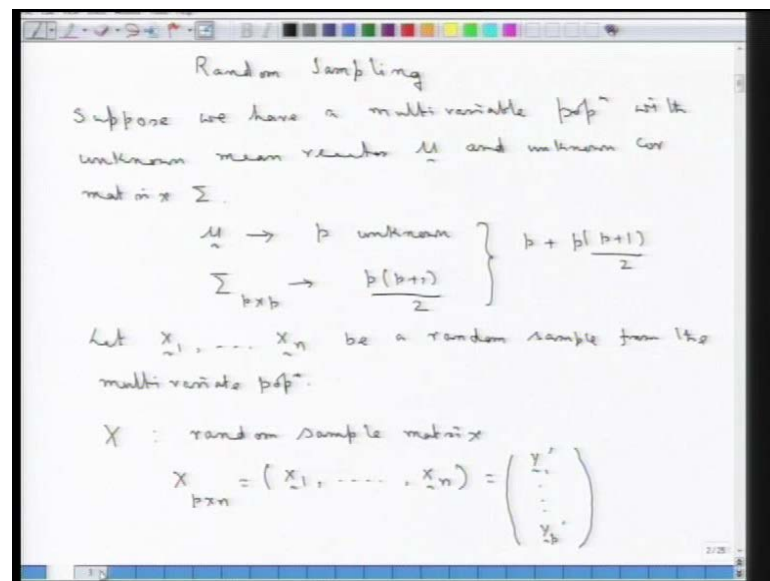 Random Sampling
Suppose we have a multivariable popⁿ with
unknown mean vector μ̰ and unknown cov
matrix Σ.
μ̰ → p unknown } p + p(p+1)/2
Σ_{p×p} → p(p+1)/2
Let x̰₁, .... x̰ₙ be a random sample from the
multivariate popⁿ.
X : random sample matrix
X_{p×n} = ( x̰₁, ....., x̰ₙ ) = ( y̰₁' . . . y̰ₚ' )